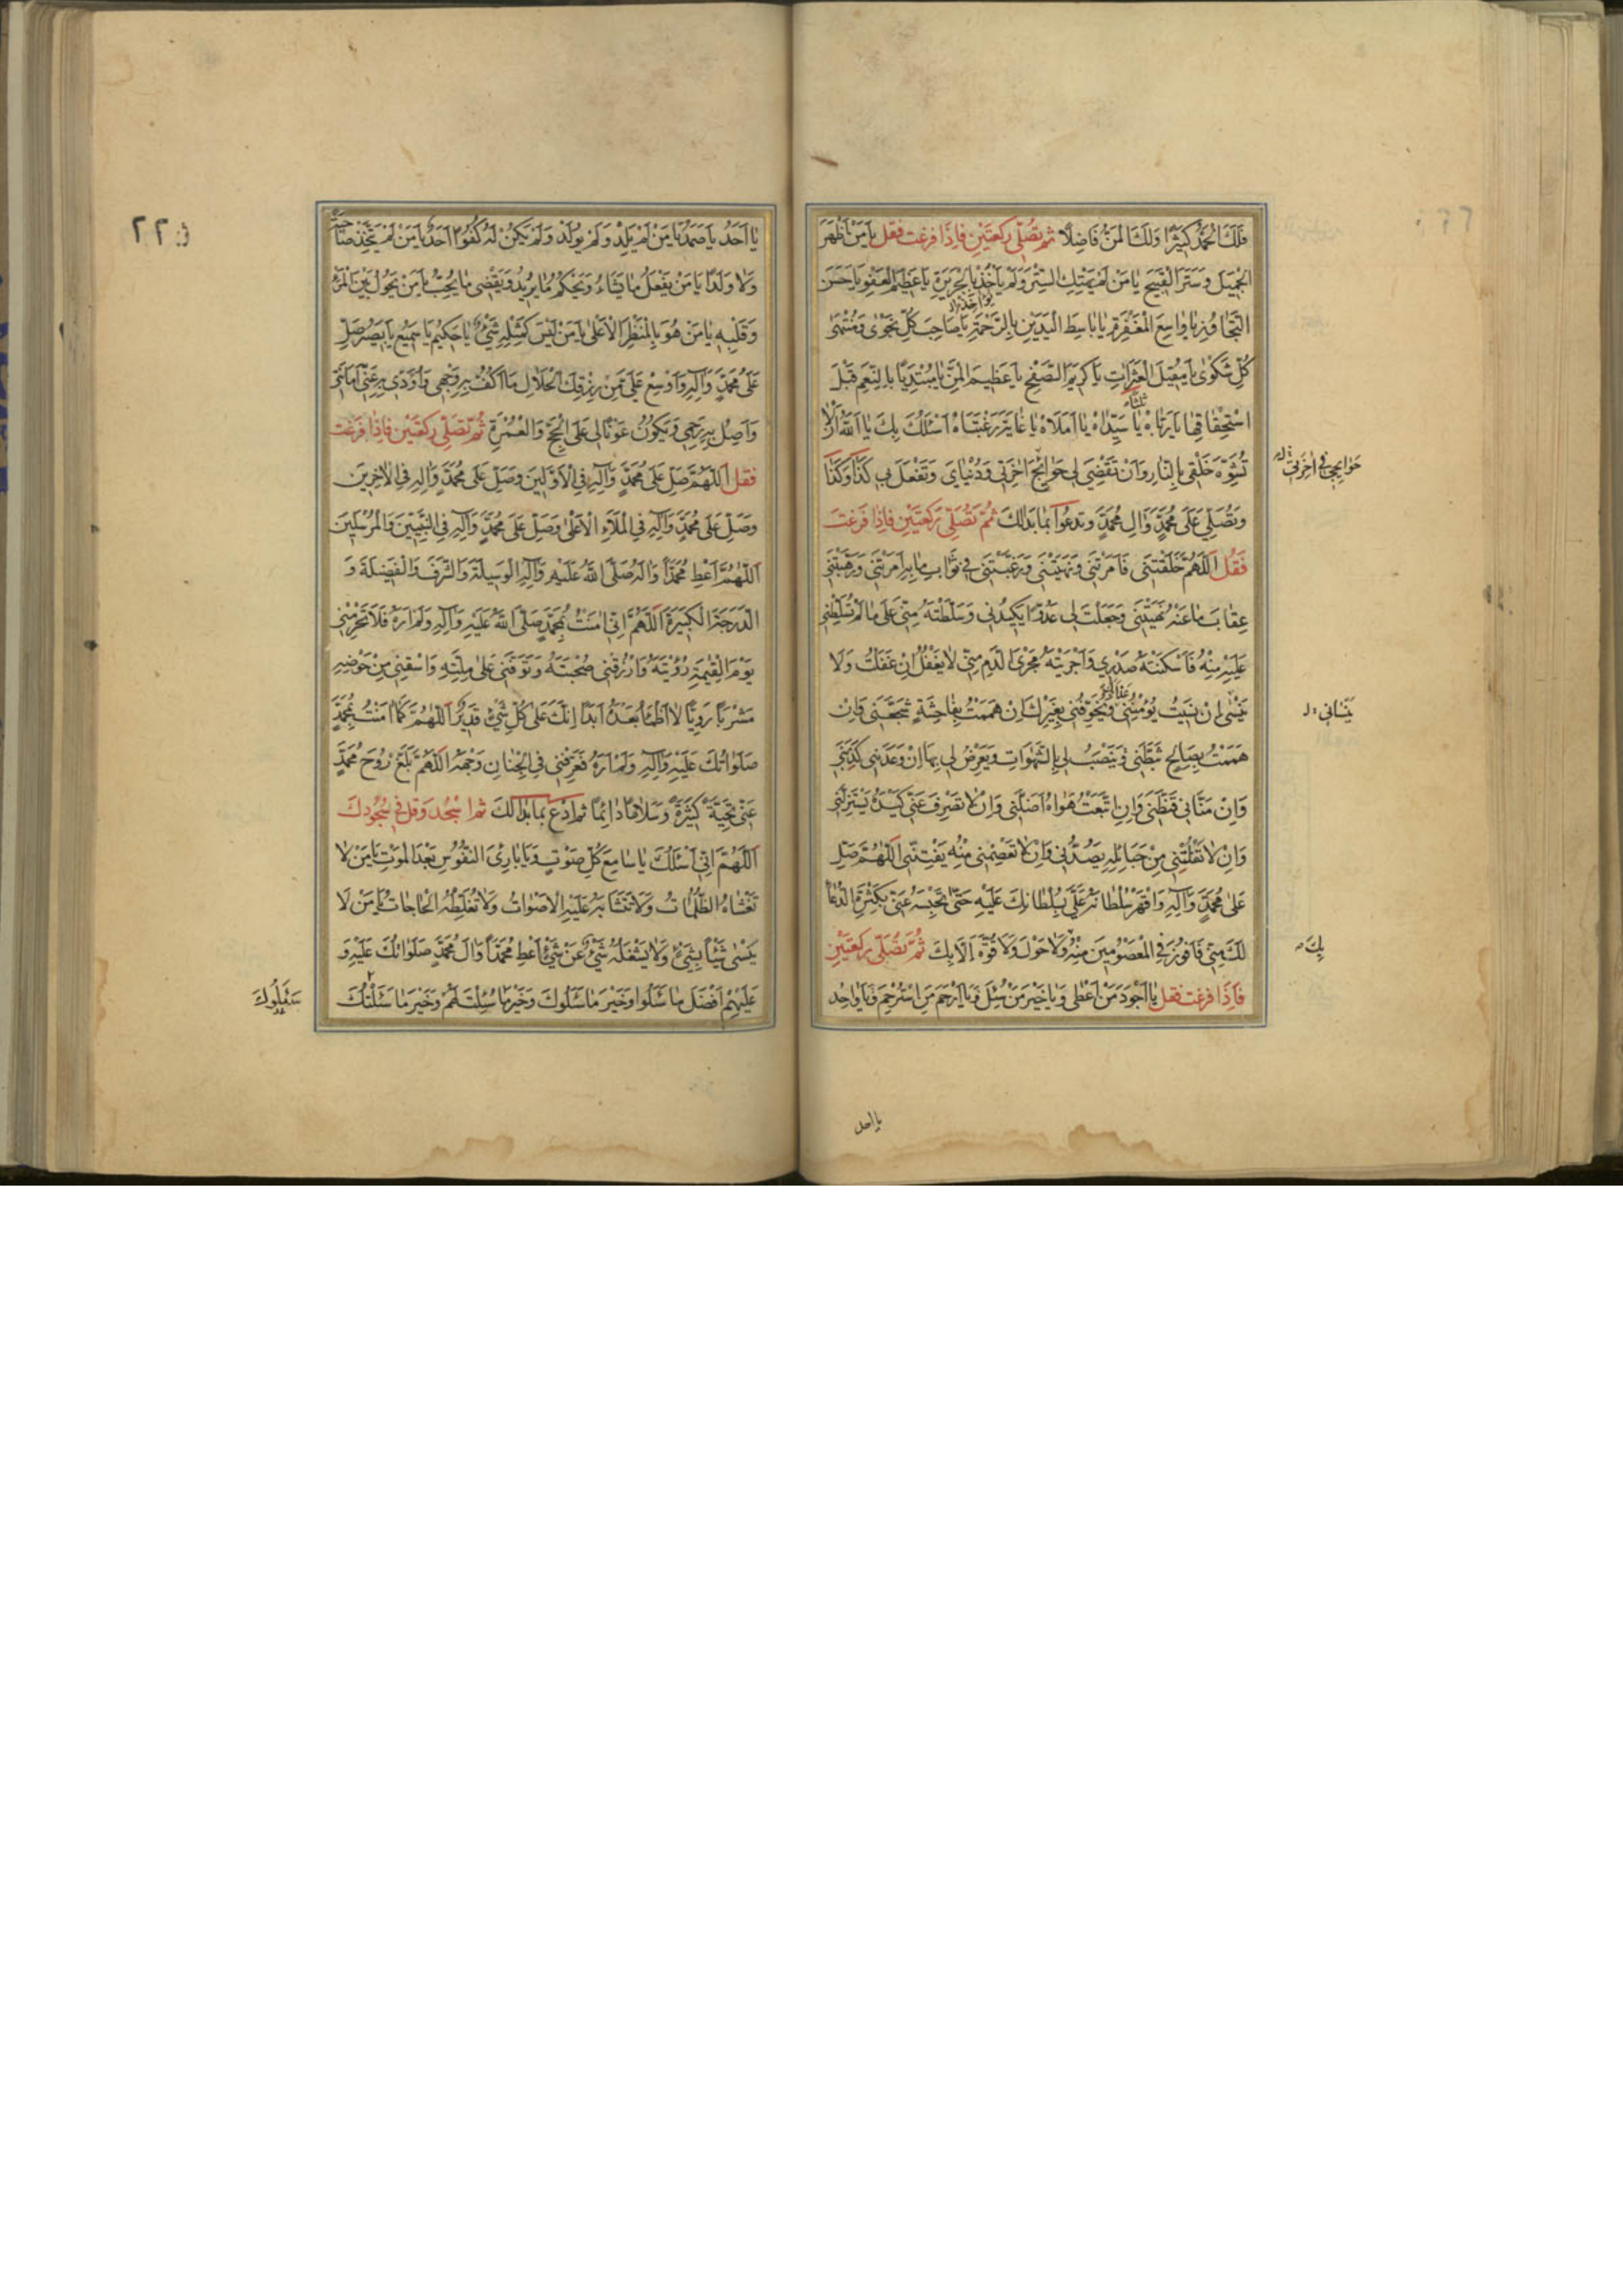 فَلَكَ الْحَمْدُ كَثِيرًا وَلَكَ الْمَنُّ فَاضِلًا ثم تُصَلّي رَكعَتَيْنِ فَاِذَا فرغت فقل يٰا مَنْ اَظْهَرَ
الْجَمِيلَ وَسَتَرَ الْقَبِيحَ يٰا مَنْ لَمْ يَهْتِكِ السِّتْرَ وَلَمْ يَأْخُذْ بِالْجَرِيرَةِ يٰا عَظِيمَ الْعَفْوِ يٰا حَسَنَ
يُؤٰاخِذْ
التَّجٰاوُزِ يٰا وٰاسِعَ الْمَغْفِرَةِ يٰا بٰاسِطَ الْيَدَيْنِ بِالرَّحْمَةِ يٰا صٰاحِبَ كُلِّ نَجْوٰى وَمُنْتَهٰى
كُلِّ شَكْوٰى يٰا مُقِيلَ الْعَثَرٰاتِ يٰا كَرِيمَ الصَّفْحِ يٰا عَظِيمَ الْمَنِّ يٰا مُبْتَدِئًا بِالنِّعَمِ قَبْلَ
اسْتِحْقٰاقِهٰا يٰا رَبّٰاهُ يٰا سَيِّدٰاهُ يٰا اَمَلٰاهُ يٰا غٰايَةَ رَغْبَتٰاهُ اَسْئَلُكَ بِكَ يٰا اَللّٰهُ اَنْ لٰا
تُشَوِّهَ خَلْقِي بِالنّٰارِ وَاَنْ تَقْضِيَ لِي حَوٰائِجَ اٰخِرَتِي وَدُنْيٰايَ وَتَفْعَلَ بِي كَذٰا وَكَذٰا
حَوٰائِجِي فِي اٰخِرَتِي
وَتُصَلِّي عَلَى مُحَمَّدٍ وَاٰلِ مُحَمَّدٍ وَتَدعُوا بِمٰا بَدٰا لَكَ ثُمَّ تُصَلِّي رَكعَتَيْنِ فَاِذٰا فَرَغتَ
فَقُل اَللّٰهُمَّ خَلَقْتَنِي فَاَمَرْتَنِي وَنَهَيْتَنِي وَرَغَّبْتَنِي فِي ثَوٰابِ مٰا بِهِ اَمَرْتَنِي وَرَهَّبْتَنِي
عِقٰابَ مٰا عَنْهُ نَهَيْتَنِي وَجَعَلْتَ لِي عَدُوًّا يَكِيدُنِي وَسَلَّطْتَهُ مِنِّي عَلَى مٰا لَمْ تُسَلِّطْنِي
عَلَيْهِ مِنْهُ فَاَسْكَنْتَهُ صَدْرِي وَاَجْرَيْتَهُ مَجْرَى الدَّمِ مِنِّي لٰا يَغْفُلُ اِنْ غَفَلْتُ وَلٰا
يَنْسٰى اِنْ نَسِيتُ يُؤْمِنُنِي وَيُخَوِّفُنِي بِغَيْرِكَ اِنْ هَمَمْتُ بِفٰاحِشَةٍ شَجَّعَنِي وَاِنْ
هَمَمْتُ بِصٰالِحٍ ثَبَّطَنِي وَيَنْصِبُ لِي بِالشَّهَوٰاتِ وَيَعْرِضُ لِي بِهٰا اِنْ وَعَدَنِي كَذَبَنِي
وَاِنْ مَنّٰانِي قَنَّطَنِي وَاِنِ اتَّبَعْتُ هَوٰاهُ اَضَلَّنِي وَاِنْ لٰا تَصْرِفْ عَنِّي كَيْدَهُ يَسْتَزِلَّنِي
وَاِنْ لٰا تُفْلِتْنِي مِنْ حَبٰائِلِهِ يَصُدَّنِي وَاِنْ لٰا تَعْصِمْنِي مِنْهُ يَفْتِنِّي اَللّٰهُمَّ صَلِّ
عَلٰى مُحَمَّدٍ وَاٰلِهِ وَاقْهَرْ سُلْطٰانَهُ عَلَيَّ بِسُلْطٰانِكَ عَلَيْهِ حَتّٰى تَحْبِسَهُ عَنِّي بِكَثْرَةِ الدُّعٰاءِ
لَكَ مِنِّي فَاَفُوزَ فِي الْمَعْصُومِينَ مِنْهُ وَلٰا حَوْلَ وَلٰا قُوَّةَ اِلّٰا بِكَ ثُمَّ تُصَلّي رَكعَتَيْنِ
بِكَ
فَاِذَا فرغت فقل يٰا اَجْوَدَ مَنْ اَعْطٰى وَيٰا خَيْرَ مَنْ سُئِلَ وَيٰا اَرْحَمَ مَنِ اسْتُرْحِمَ وَيٰا وٰاحِدُ
يا احد
٢٢
يٰا اَحَدُ يٰا صَمَدُ يٰا مَنْ لَمْ يَلِدْ وَلَمْ يُولَدْ وَلَمْ يَكُنْ لَهُ كُفُوًا اَحَدٌ يٰا مَنْ لَمْ يَتَّخِذْ صٰاحِبَةً
وَلٰا وَلَدًا يٰا مَنْ يَفْعَلُ مٰا يَشٰاءُ وَيَحْكُمُ مٰا يُرِيدُ وَيَقْضِي مٰا يُحِبُّ يٰا مَنْ يَحُولُ بَيْنَ الْمَرْءِ
وَقَلْبِهِ يٰا مَنْ هُوَ بِالْمَنْظَرِ الْاَعْلٰى يٰا مَنْ لَيْسَ كَمِثْلِهِ شَيْءٌ يٰا حَكِيمُ يٰا سَمِيعُ يٰا بَصِيرُ صَلِّ
عَلَى مُحَمَّدٍ وَاٰلِهِ وَاَوْسِعْ عَلَيَّ مِنْ رِزْقِكَ الْحَلٰالِ مٰا اَكُفُّ بِهِ وَجْهِي وَاُؤَدِّي بِهِ عَنِّي اَمٰانَتِي
وَاَصِلُ بِهِ رَحِمِي وَيَكُونُ عَوْنًا لِي عَلَى الْحَجِّ وَالْعُمْرَةِ ثُمَّ تُصَلّي رَكعَتَيْن فَاِذٰا فَرَغْتَ
فَقل اَللّٰهُمَّ صَلِّ عَلَى مُحَمَّدٍ وَاٰلِهِ فِي الْاَوَّلِينَ وَصَلِّ عَلَى مُحَمَّدٍ وَاٰلِهِ فِي الْاٰخِرِينَ
وَصَلِّ عَلَى مُحَمَّدٍ وَاٰلِهِ فِي الْمَلَاءِ الْاَعْلٰى وَصَلِّ عَلَى مُحَمَّدٍ وَاٰلِهِ فِي النَّبِيِّينَ وَالْمُرْسَلِينَ
اَللّٰهُمَّ اَعْطِ مُحَمَّدًا وَاٰلَهُ صَلَّى اللّٰهُ عَلَيْهِ وَاٰلِهِ الْوَسِيلَةَ وَالشَّرَفَ وَالْفَضِيلَةَ وَ
الدَّرَجَةَ الْكَبِيرَةَ اَللّٰهُمَّ اِنِّي اٰمَنْتُ بِمُحَمَّدٍ صَلَّى اللّٰهُ عَلَيْهِ وَاٰلِهِ وَلَمْ اَرَهُ فَلٰا تَحْرِمْنِي
يَوْمَ الْقِيٰمَةِ رُؤْيَتَهُ وَارْزُقْنِي صُحْبَتَهُ وَتَوَفَّنِي عَلٰى مِلَّتِهِ وَاسْقِنِي مِنْ حَوْضِهِ
مَشْرَبًا رَوِيًّا لٰا اَظْمَاُ بَعْدَهُ اَبَدًا اِنَّكَ عَلٰى كُلِّ شَيْءٍ قَدِيرٌ اَللّٰهُمَّ كَمٰا اٰمَنْتُ بِمُحَمَّدٍ
صَلَوٰاتُكَ عَلَيْهِ وَاٰلِهِ وَلَمْ اَرَهُ فَعَرِّفْنِي فِي الْجِنٰانِ وَجْهَهُ اَللّٰهُمَّ بَلِّغْ رُوحَ مُحَمَّدٍ
عَنِّي تَحِيَّةً كَثِيرَةً وَسَلٰامًا دٰائِمًا ثم ادْعُ بِمٰا بَدٰا لَكَ ثم اسْجُد وَقل فِي سُجُودِكَ
اَللّٰهُمَّ اِنِّي اَسْئَلُكَ يٰا سٰامِعَ كُلِّ صَوْتٍ وَيٰا بٰارِئَ النُّفُوسِ بَعْدَ الْمَوْتِ يٰا مَنْ لٰا
تَغْشٰاهُ الظُّلُمٰاتُ وَلٰا تَتَشٰابَهُ عَلَيْهِ الْاَصْوٰاتُ وَلٰا تُغَلِّطُهُ الْحٰاجٰاتُ يٰا مَنْ لٰا
يَنْسٰى شَيْئًا بِشَيْءٍ وَلٰا يَشْغَلُهُ شَيْءٌ عَنْ شَيْءٍ اَعْطِ مُحَمَّدًا وَاٰلَ مُحَمَّدٍ صَلَوٰاتُكَ عَلَيْهِ وَ
عَلَيْهِمْ اَفْضَلَ مٰا سَئَلُوا وَخَيْرَ مٰا سَئَلُوكَ وَخَيْرَ مٰا سُئِلْتَ لَهُمْ وَخَيْرَ مٰا سَئَلْتُكَ
سَئَلُوكَ